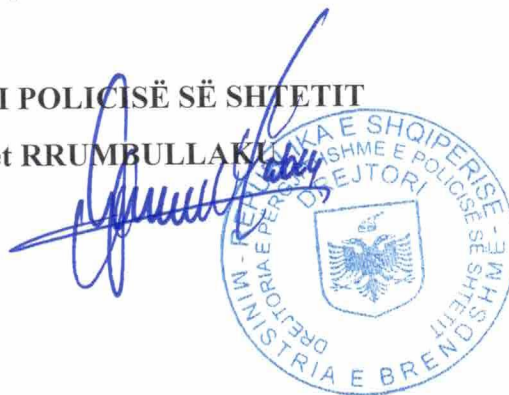 I POLICISË SË SHTETIT
et RRUMBULLAKU
REPUBLIKA E SHQIPERISE - MINISTRIA E BRENDSHME -
DREJTORIA E PERGJITHSHME E POLICISË SË SHTETIT
DREJTORI